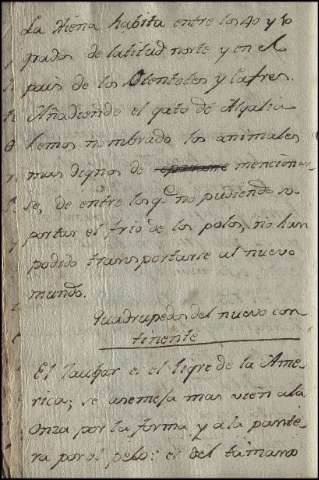 La Hiena habita entre los 40 y 10
grados de latitud norte y en el
pais de los Otentotes y Cafres.
Añadiendo el gato de Algalia
hemos nombrado los animales
mas dignos de mencionar-
se, de entre los q.e no pudiendo so-
portar el frio de los polos, no han
podido transportarse al nuevo
mundo.
Quadrupedos del nuevo con-
tinente
El Jaugar es el tigre de la Ame-
rica; se asemeja mas bien a la
onza por la forma y a la pante-
ra por el pelo: es del tamaño